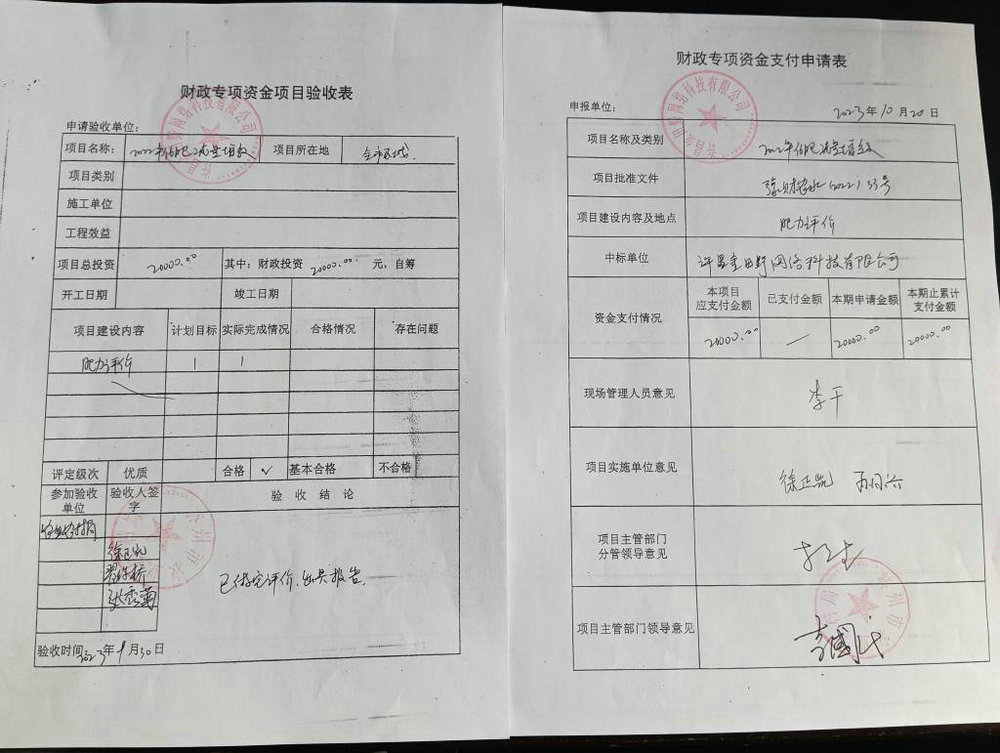 财政专项资金项目验收表
申请验收单位：
项目名称： 2022年 项目所在地 全市区域
项目类别
施工单位
工程效益
项目总投资 20000.00 其中：财政投资 20000.00 元，自筹
开工日期 竣工日期
项目建设内容 计划目标 实际完成情况 合格情况 存在问题
肥力评价 1 1
评定级次 优质 合格 ✓ 基本合格 不合格
参加验收单位 验收人签字 验 收 结 论
徐正凯
已 评价、出具报告.
验收时间 2023年9月30日
财政专项资金支付申请表
申报单位： 2023年10月20日
项目名称及类别 2022年
项目批准文件 豫财农水(2022)53号
项目建设内容及地点 肥力评价
中标单位 许昌 田野网络科技有限公司
资金支付情况 本项目应支付金额 已支付金额 本期申请金额 本期止累计支付金额
20000.00 — 20000.00 20000.00
现场管理人员意见 李干
项目实施单位意见 徐正凯
项目主管部门分管领导意见
项目主管部门领导意见